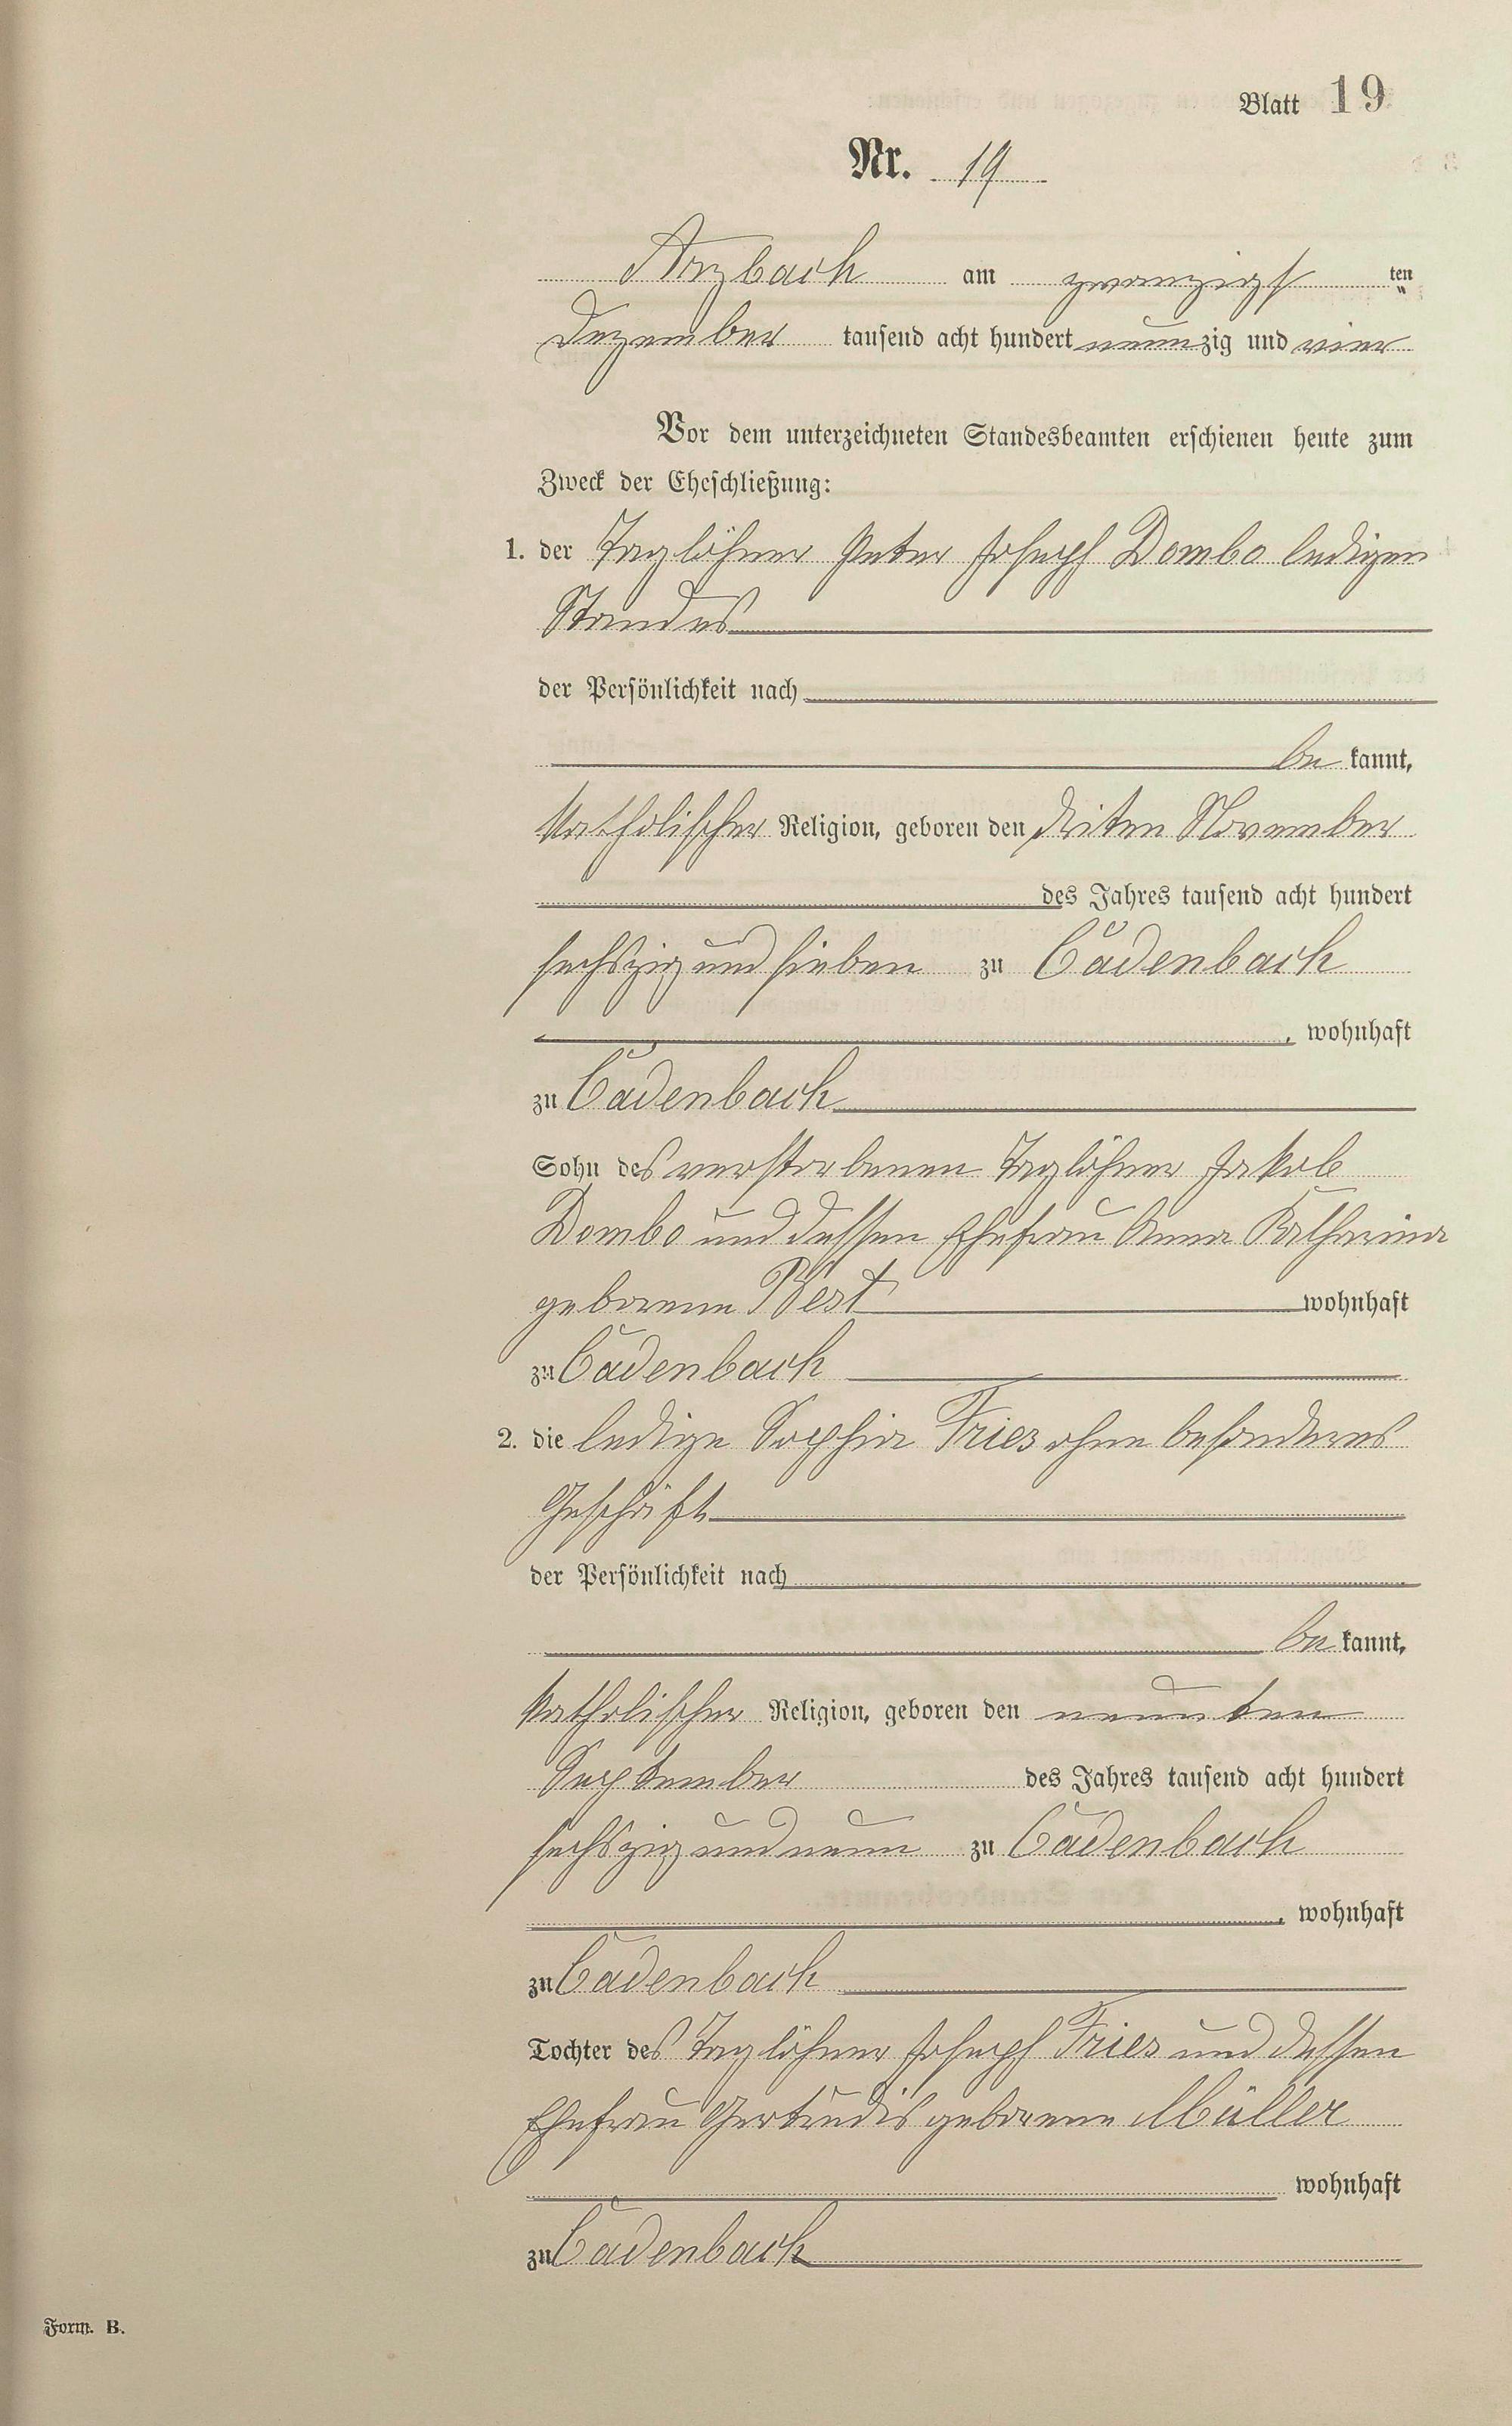 Blatt 19
Nr. 19
Arzbach am zwanzigst ten
Dezember tausend acht hundert neunzig und vier
Vor dem unterzeichneten Standesbeamten erschienen heute zum
Zweck der Eheschließung:
1. der Taglöhner Peter Joseph Dombo ledigen
Standes
der Persönlichkeit nach
be kannt,
katholischer Religion, geboren den driten November
des Jahres tausend acht hundert
sechszig und sieben zu Cadenbach
, wohnhaft
zu Cadenbach
Sohn des verstorbenen Taglöhner Jakob
Dombo und dessen Ehefrau Anna Katharina
geborene Best wohnhaft
zu Cadenbach
2. die ledige Sophia Fries ohne besonderes
Geschäft
der Persönlichkeit nach
be kannt,
katholischer Religion, geboren den neunten
September des Jahres tausend acht hundert
sechszig und neun zu Cadenbach
, wohnhaft
zu Cadenbach
Tochter des Taglöhner Joseph Fries und dessen
Ehefrau Gertrudis geborene Müller
wohnhaft
zu Cadenbach
Form. B.